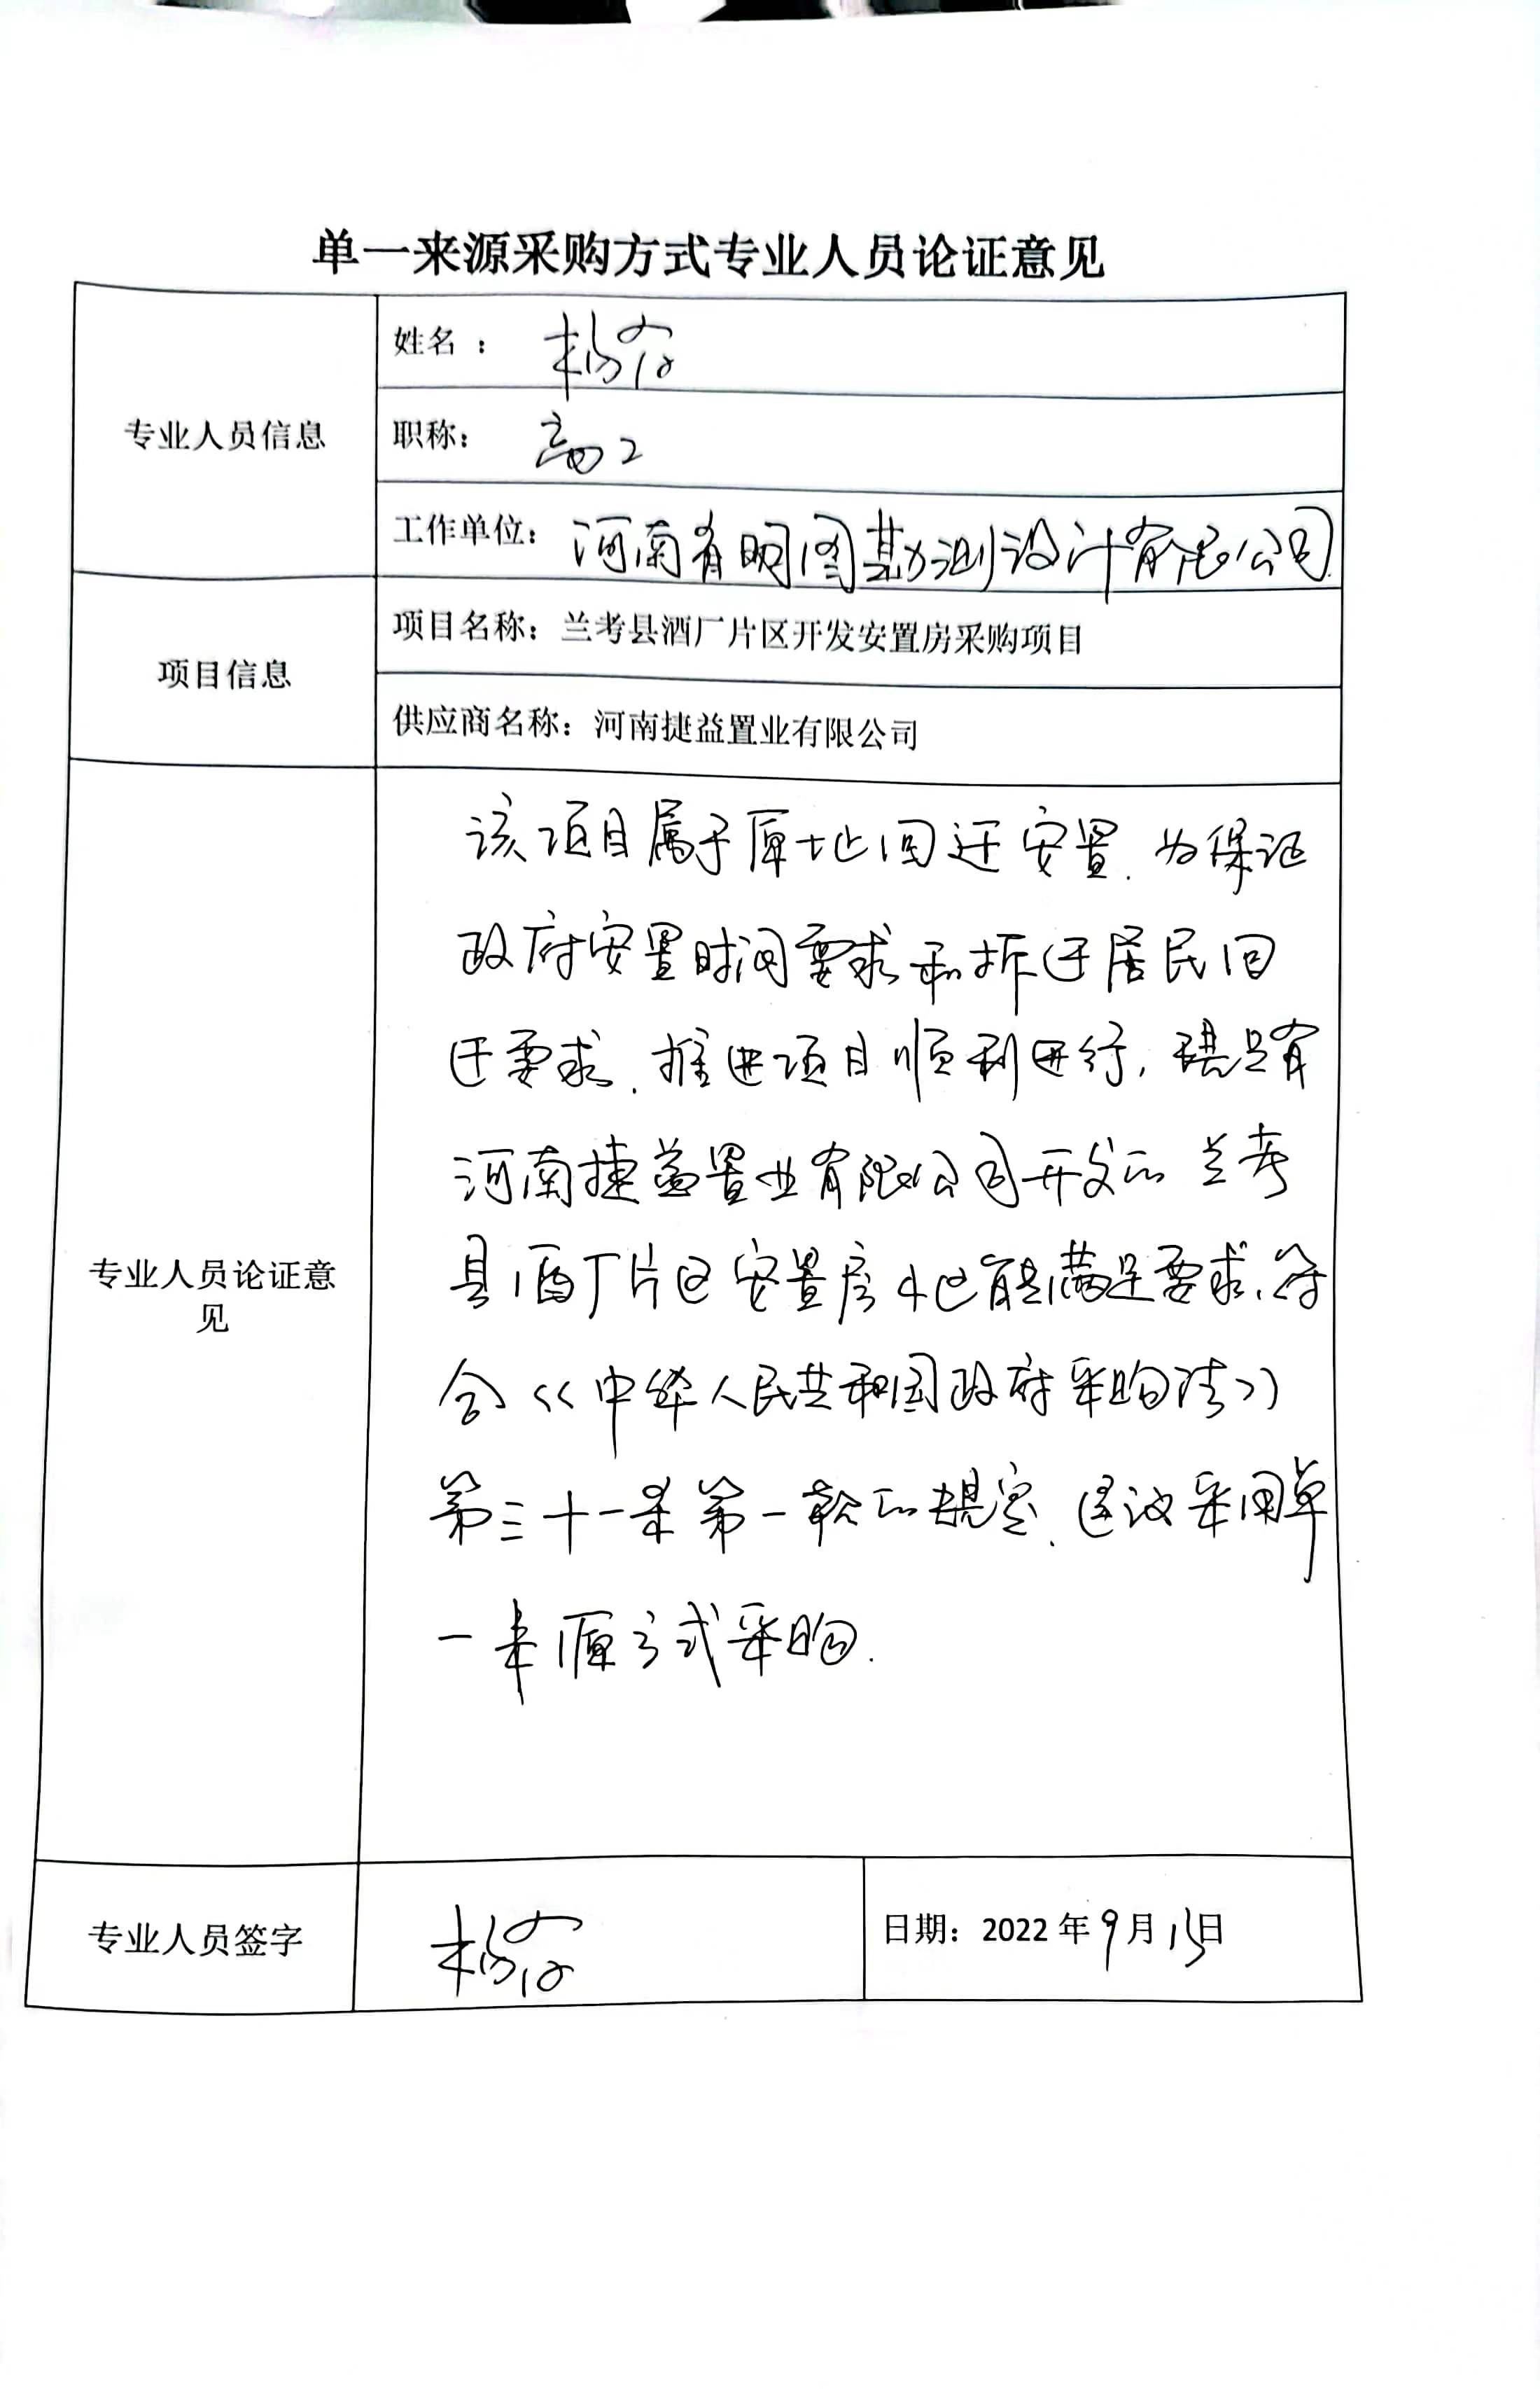 单一来源采购方式专业人员论证意见
专业人员信息
姓名： 杨
职称： 高工
工作单位： 河南有明图勘测设计有限公司.
项目信息
项目名称：兰考县酒厂片区开发安置房采购项目
供应商名称：河南捷益置业有限公司
专业人员论证意
见
该项目属于原地回迁安置.为保证
政府安置时间要求和拆迁居民回
迁要求.推进项目顺利进行,现只有
河南捷益置业有限公司开发的兰考
县酒厂片区安置房地能满足要求,符
合《中华人民共和国政府采购法》
第三十一条第一款的规定.建议采用单
一来源方式采购.
专业人员签字
杨
日期：2022年9月15日